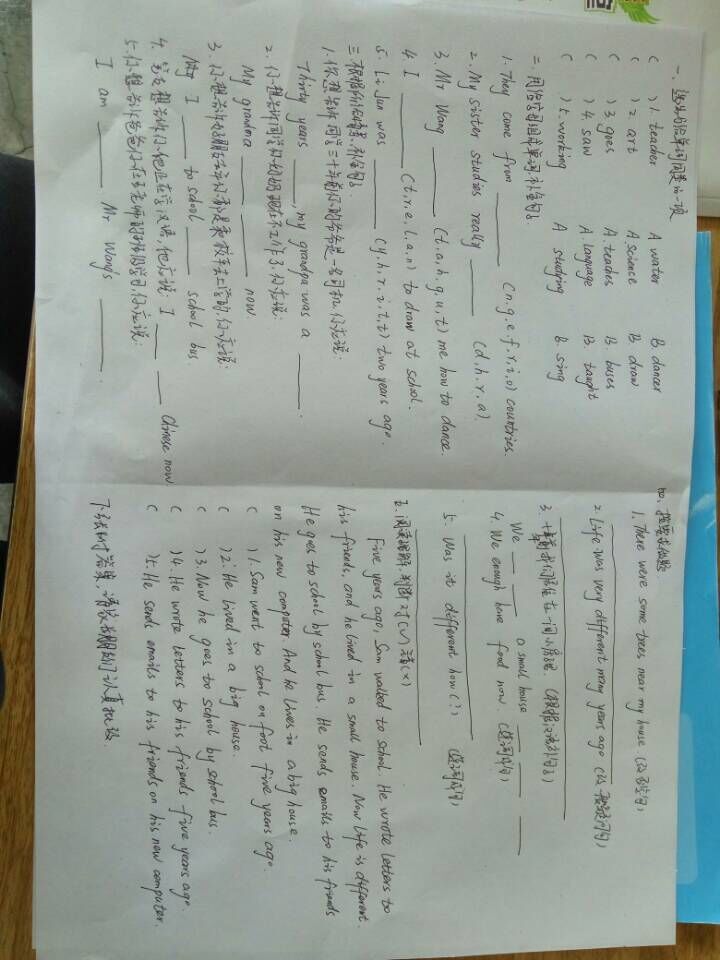 一、选出与所给单词同类的一项
( ) 1. teacher A. water B. dancer
( ) 2. art A. science B. draw
( ) 3. goes A. teaches B. buses
( ) 4. saw A. language B. taught
( ) 5. working A. studying B. sing
二、用给字母组成单词补全句子
1. They come from ______ (n.g.e.f.r.i.o) countries.
2. My sister studies really ______ (d.h.r.a)
3. Mr Wang ______ (t.a.h.g.u.t) me how to dance.
4. I ______ (t.r.e.l.a.n) to draw at school.
5. Li Jun was ______ (y.h.r.i.t.t) two years ago.
三、根据情境补全句子
1. 你想告诉同学三十年前你的爷爷是一名司机,你应说:
Thirty years ______, my grandpa was a ______.
2. 你想告诉同学你的奶奶现在不工作了,你应说:
My grandma ______ ______ now
3. 你想告诉朋友你是乘校车去上学的,你应说:
I ______ to school ______ school bus
4. 想告诉你他正在学汉语,他应说: I ______ ______ Chinese now
5. 你想告诉爸爸你在王老师的班级学习,你应说:
I am ______ Mr Wang's ______
四、按要求做题
1. There were some trees near my house (改否定句)
2. Life was very different many years ago (改一般疑问句)
3. 十年前我们住在一间小房子里. (根据汉语补句子)
We ______ ______ a small house ______ ______ ______
4. We enough have food now. (连词成句)
5. Was it different how (?) (连词成句)
五、阅读理解, 判断对(✓)错(×)
Five years ago, Sam walked to school. He wrote letters to
his friends, and he lived in a small house. Now life is different.
He goes to school by school bus. He sends emails to his friends
on his new computer. And he lives in a big house.
( ) 1. Sam went to school on foot five years ago.
( ) 2. He lived in a big house.
( ) 3. Now he goes to school by school bus.
( ) 4. He wrote letters to his friends five years ago.
( ) 5. He sends emails to his friends on his new computer.